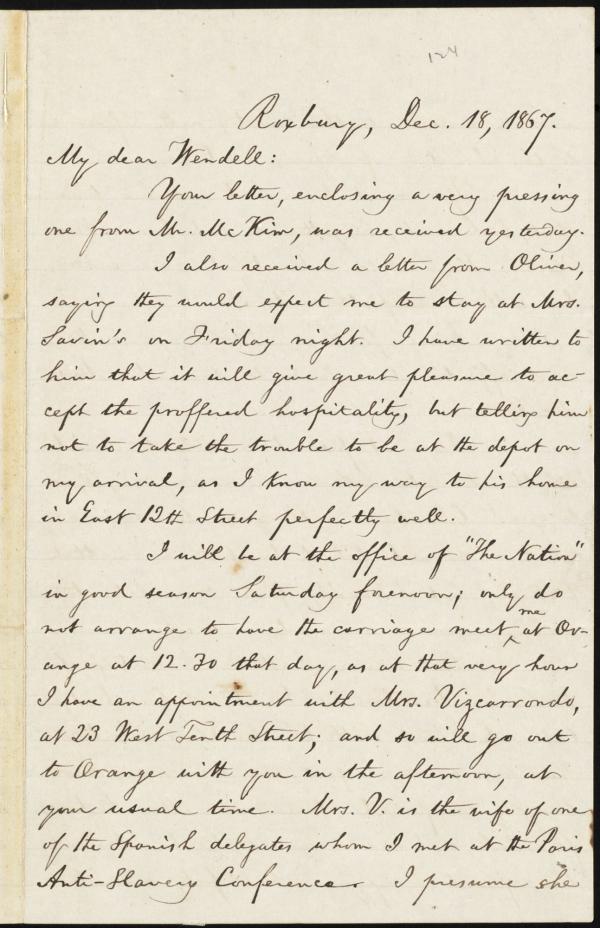 124
Roxbury, Dec. 18, 1867.
My dear Wendell:
Your letter, enclosing a very pressing
one from Mr. McKim, was received yesterday.
I also received a letter from Oliver,
saying they would expect me to stay at Mrs.
Savin's on Friday night. I have written to
him that it will give great pleasure to ac-
cept the proffered hospitality, but telling him
not to take the trouble to be at the depot on
my arrival, as I know my way to his home
in East 12th Street perfectly well.
I will be at the office of "The Nation"
in good season Saturday forenoon; only do
not arrange to have the carriage meet me at Or-
ange at 12.30 that day, as at that very hour
I have an appointment with Mrs. Vizcarrondo,
at 23 West Tenth Street; and so will go out
to Orange with you in the afternoon, at
your usual time. Mrs. V. is the wife of one
of the Spanish delegates whom I met at the Paris
Anti-Slavery Conference. I presume she